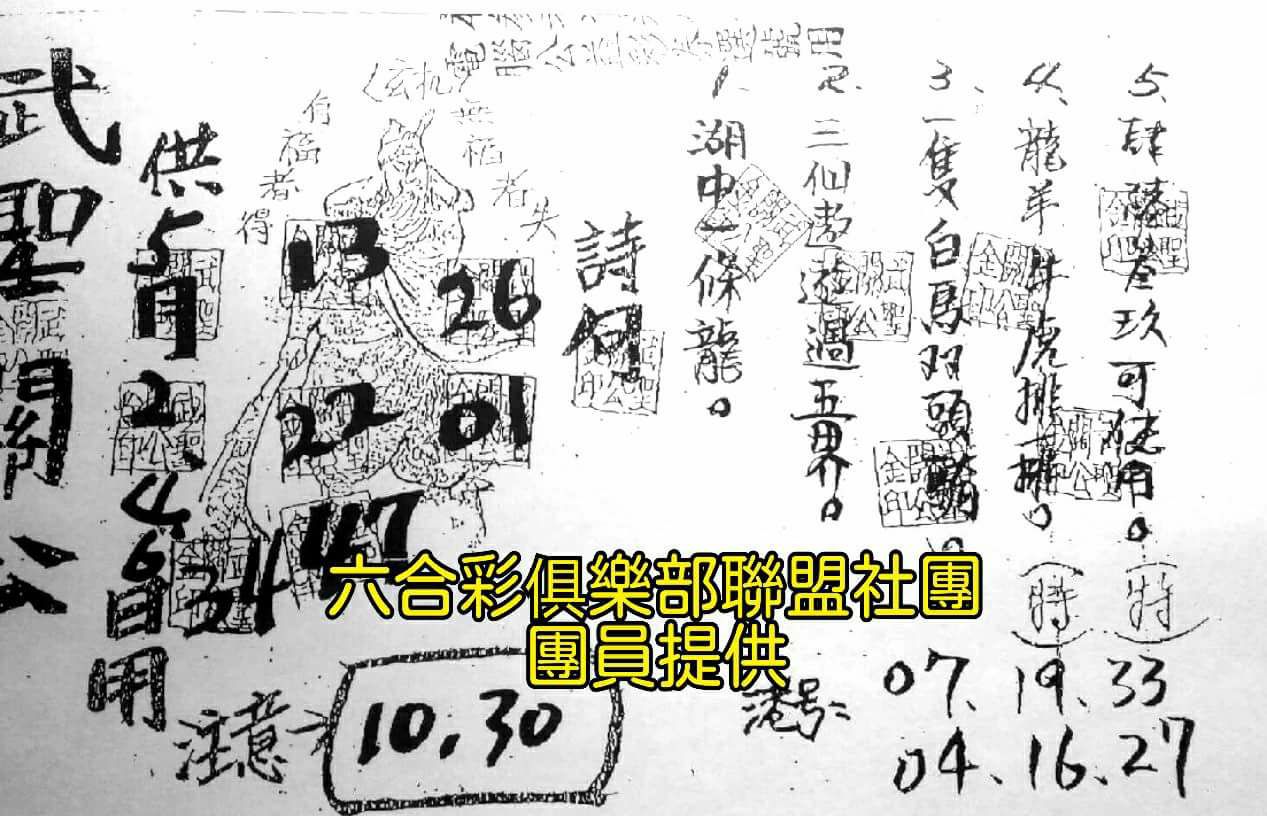 電腦公益彩券選號用
武聖關公
供5月2、4、6日用
有福者得
者失
13
26
22
01
47
34
詩句
1. 湖中一條龍。
2. 三仙遨遊過五界。
3. 一隻白馬双頭騎。
4. 龍羊牛虎排一排。(時)
5. 肆陸叁玖可使用。(特)
六合彩俱樂部聯盟社團
團員提供
注意→
10.30
港号:
07. 19. 33
04. 16. 27